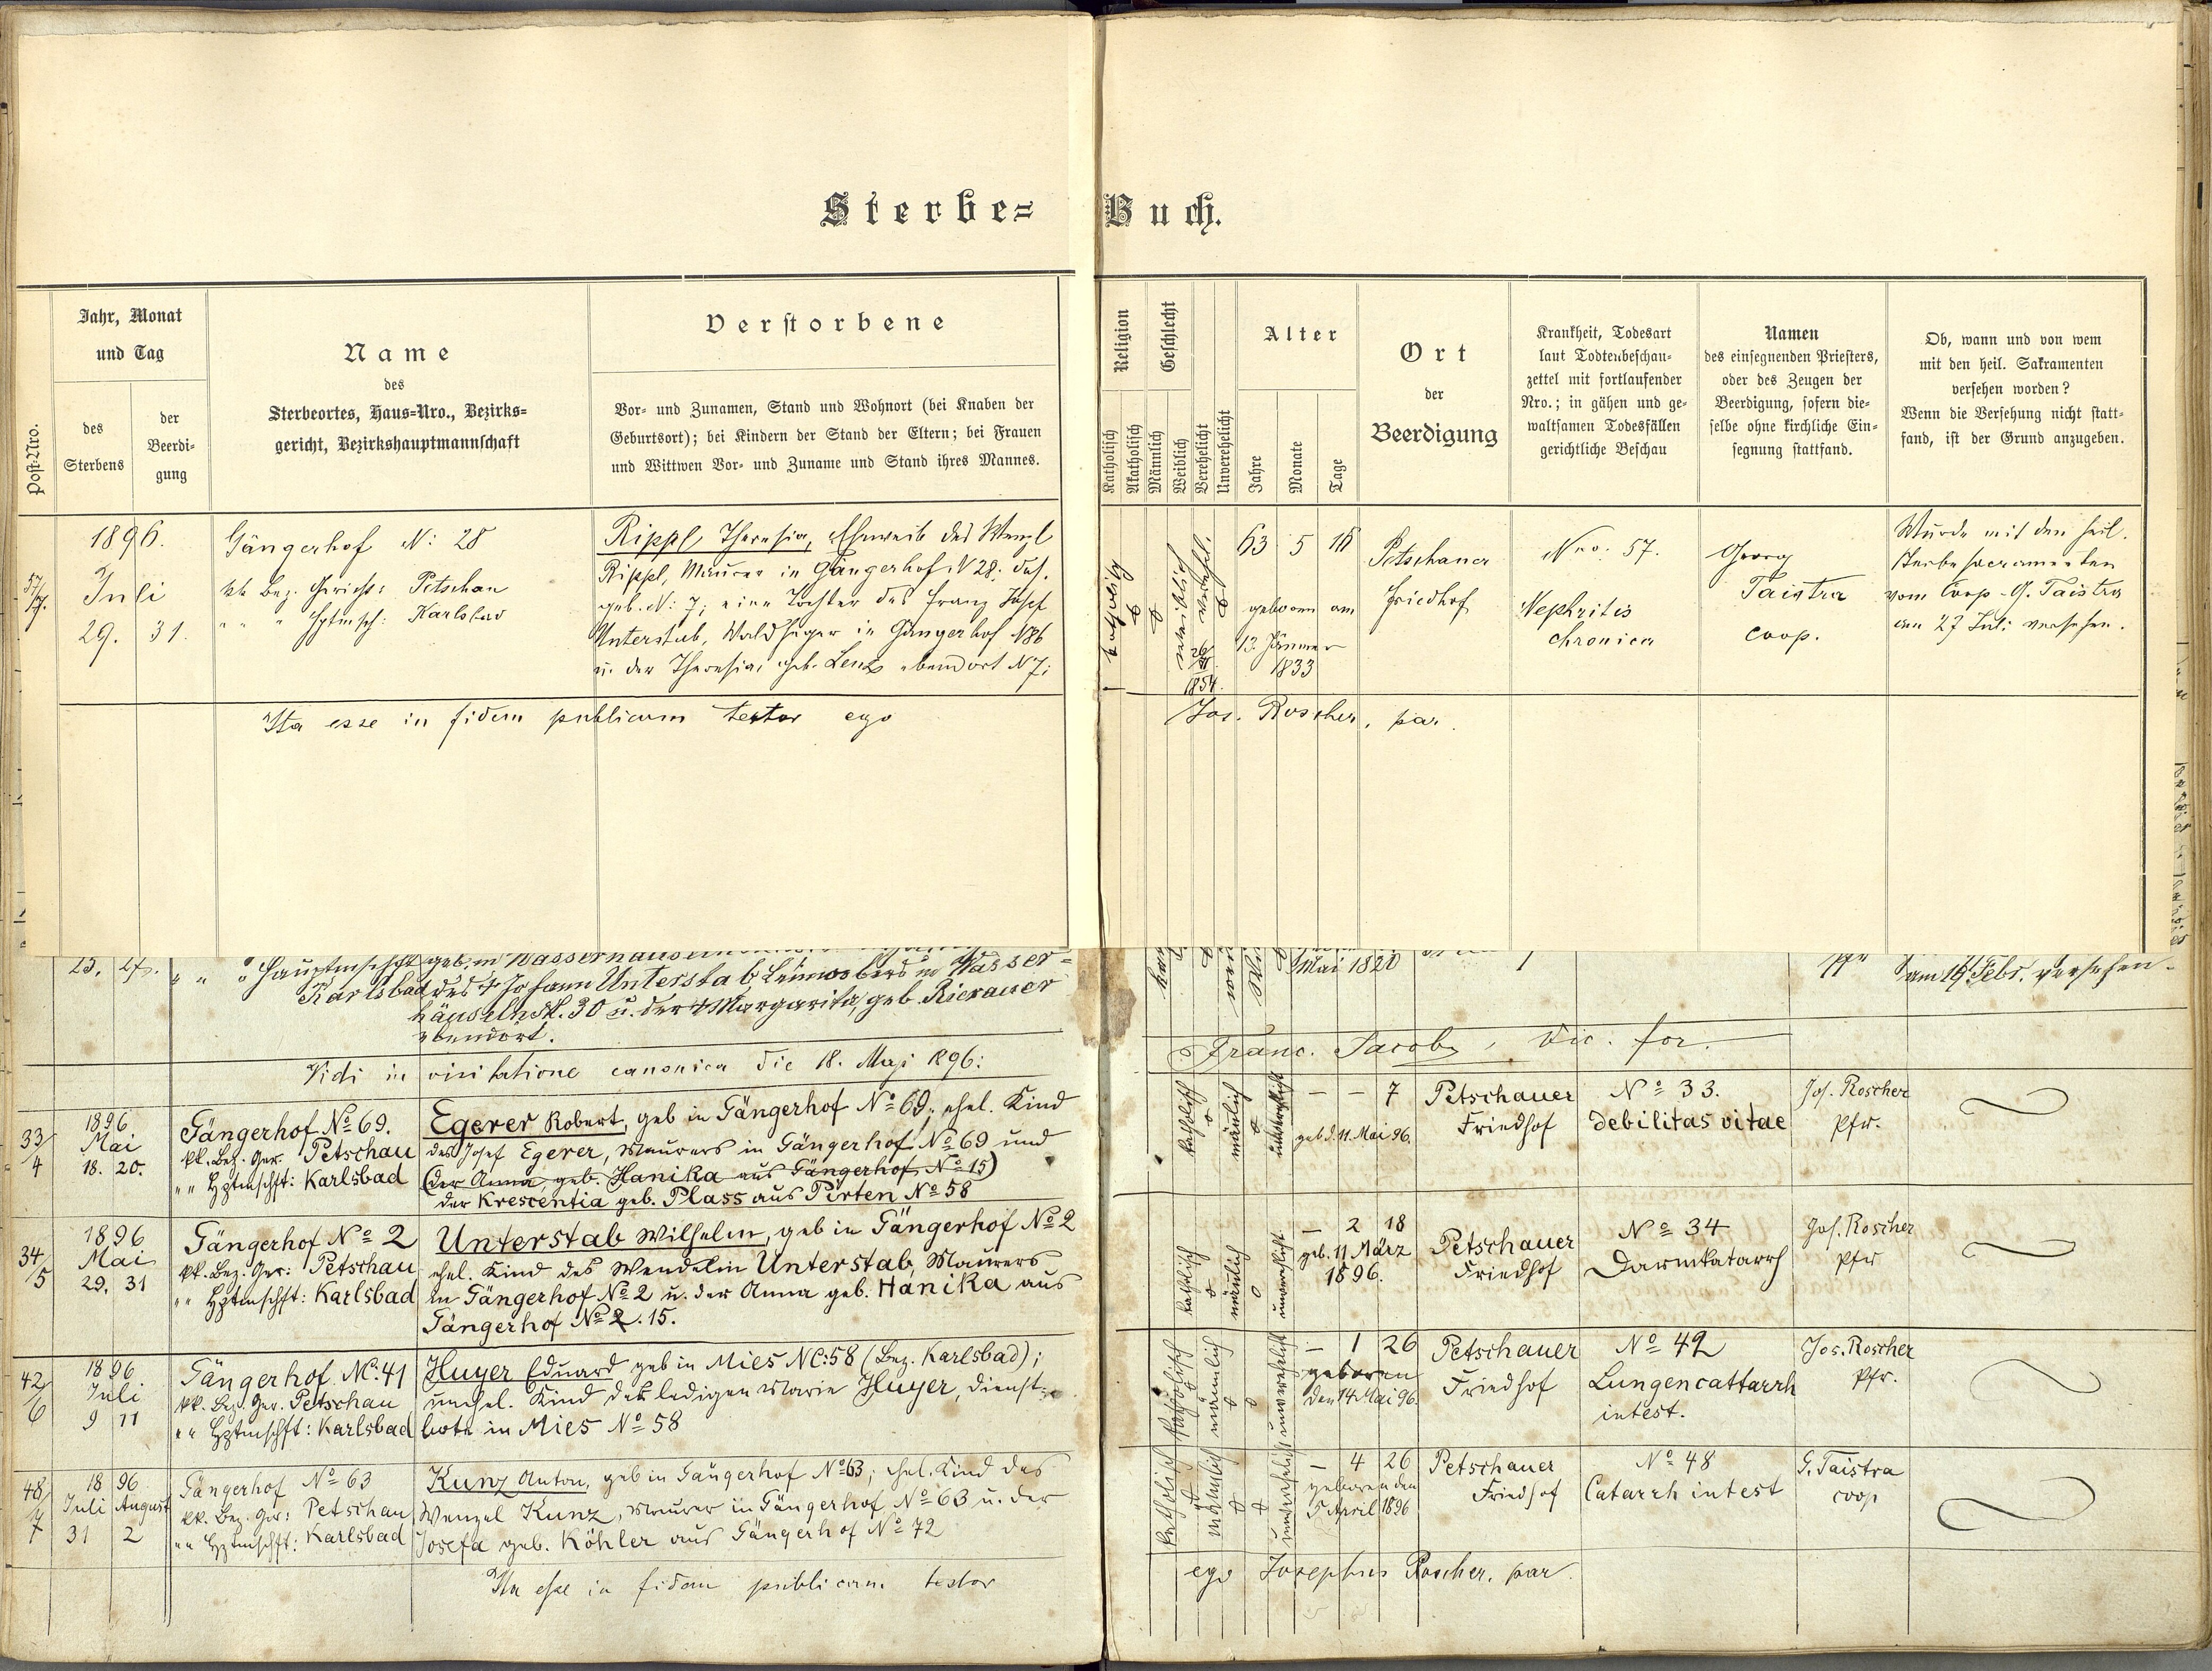 Sterbe=Buch.
Post-Nro.
Jahr, Monat
und Tag
des
Sterbens
der
Beerdi-
gung
Name
des
Sterbeortes, Haus-Nro., Bezirks-
gericht, Bezirkshauptmannschaft
Verstorbene
Vor- und Zunamen, Stand und Wohnort (bei Knaben der
Geburtsort); bei Kindern der Stand der Eltern; bei Frauen
und Wittwen Vor- und Zuname und Stand ihres Mannes.
Religion
Katholisch
Akatholisch
Geschlecht
Männlich
Weiblich
Verehelicht
Unverehelicht
Alter
Jahre
Monate
Tage
Ort
der
Beerdigung
Krankheit, Todesart
laut Todtenbeschau-
zettel mit fortlaufender
Nro.; in gähen und ge-
waltsamen Todesfällen
gerichtliche Beschau
Namen
des einsegnenden Priesters,
oder des Zeugen der
Beerdigung, sofern die-
selbe ohne kirchliche Ein-
segnung stattfand.
Ob, wann und von wem
mit den heil. Sakramenten
versehen worden?
Wenn die Versehung nicht statt-
fand, ist der Grund anzugeben.
57/7.
1896.
Juli
29. 31.
Gängerhof N: 28
kk Bez. Gericht: Petschau
" " " Hptmsch: Karlsbad
Rippl Theresia, Eheweib des Wenzl
Rippl, Maurer in Gängerhof N 28. das.
geb. N: 7; eine Tochter des Franz Josef
Unterstab, Waldheger in Gängerhof N86
u. der Theresia, geb. Lenz ebendort N 7;
katholisch
weiblich
verehl.
1854.
63 5 16
geboren am
13. Jänner
1833
Petschauer
Friedhof
Nro: 57.
Nephritis
chronica
Georg
Taistra
coop.
Wurde mit den heil.
Sterbesacramenten
vom Coop. G. Taistra
am 27 Juli versehen.
Ita esse in fidem publicam testor ego Jos. Roscher, par.
25. 27.
" " " Hauptmschft
Karlsbad
geb. in
des † Johann Unterstab in Wasser=
häuseln N. 30 u. der † Margarita, geb.
ebendort.
Mai 1820
am 19 Febr. versehen.
Vidi in visitatione canonica die 18. Maj 1896: Franc. Jacob, Vic. for.
33/4
1896
Mai
18. 20.
Gängerhof No 69.
kk. Bez. Ger. Petschau
" " Hptmschft: Karlsbad
Egerer Robert, geb in Gängerhof No 69, ehel. Kind
des Josef Egerer, Maurers in Gängerhof No 69 und
(der Anna geb. Hanika aus Gängerhof No 15)
der Krescentia geb. Plass aus Pirten No 58
katholisch
männlich
unverehelicht
— — 7
geb. d. 11. Mai 96.
Petschauer
Friedhof
No 33.
Debilitas vitae
Jos. Roscher
Pfr.
34/5
1896
Mai
29. 31
Gängerhof No 2
kk. Bez. Ger: Petschau
" " Hptmschft: Karlsbad
Unterstab Wilhelm, geb in Gängerhof No 2
ehel. Kind des Wendelin Unterstab, Maurers
in Gängerhof No 2 u. der Anna geb. Hanika aus
Gängerhof No 2. 15.
katholisch
männlich
unverehelicht
— 2 18
geb. 11 März
1896.
Petschauer
Friedhof
No 34
Darmkatarrh
Jos. Roscher
Pfr
42/6
1896
Juli
9 11
Gängerhof. NC: 41
kk. Bez. Ger. Petschau
" " Hptmschft: Karlsbad
Huyer Eduard geb in Mies NC: 58 (Bez. Karlsbad);
unehel. Kind der ledigen Marie Huyer, Dienst=
bote in Mies No 58
katholisch
männlich
unverehelicht
— 1 26
geboren
den 14 Mai 96.
Petschauer
Friedhof
No 42
Lungencattarrh
intest.
Jos. Roscher
Pfr.
48/7
1896
Juli August
31 2
Gängerhof No 63
kk. Bez. Ger: Petschau
" " Hptmschft: Karlsbad
Kunz Anton, geb in Gängerhof No 63; ehel. Kind des
Wenzel Kunz, Maurer in Gängerhof No 63 u. der
Josefa geb. Köhler aus Gängerhof No 72
katholisch
männlich
unverehelicht
— 4 26
geboren den
5 April 1896
Petschauer
Friedhof
No 48
Catarrh intest
G. Taistra
coop
Ita esse in fidem publicam testor ego Josephus Roscher, par.